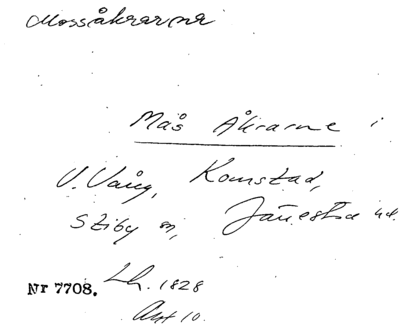 Mossåkrarna
Mås Åkrarne i
V. Vång, Komstad,
Stiby sn, Järrestad hd.
Nr 7708. Lh. 1828
Akt 10.